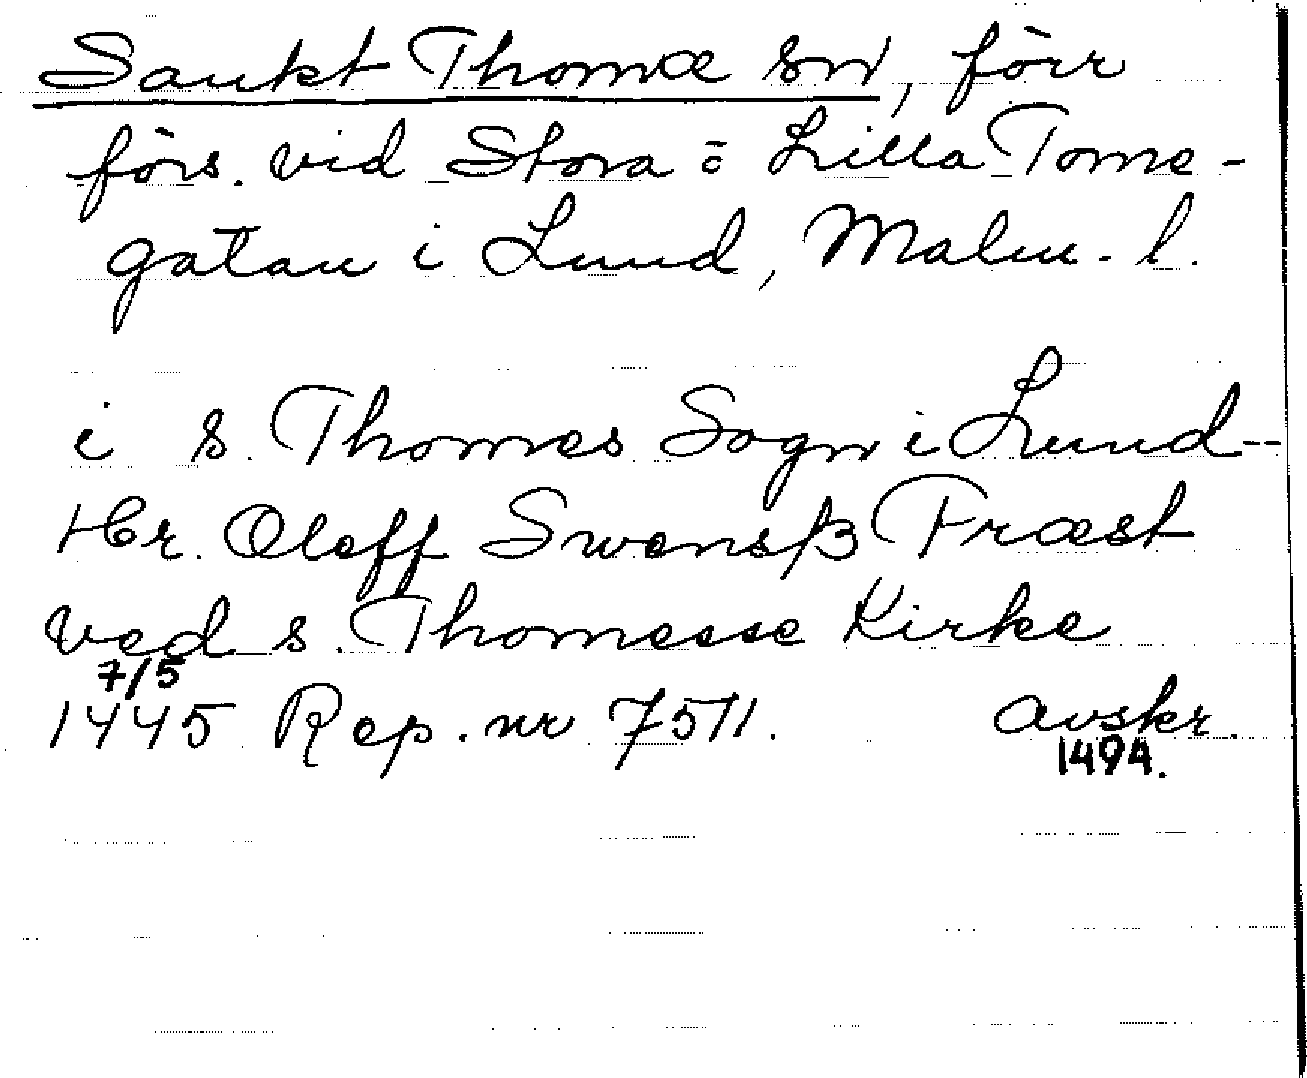 Sankt Thomæ sn, förr
förs. vid Stora o Lilla Tome-
gatan i Lund, Malm. l.
i s. Thomes Sogn i Lund--
Hr. Oleff Swensß Præst
ved s. Thomesse Kirke
7/5
1445 Rep. nr 7511. avskr.
1494.